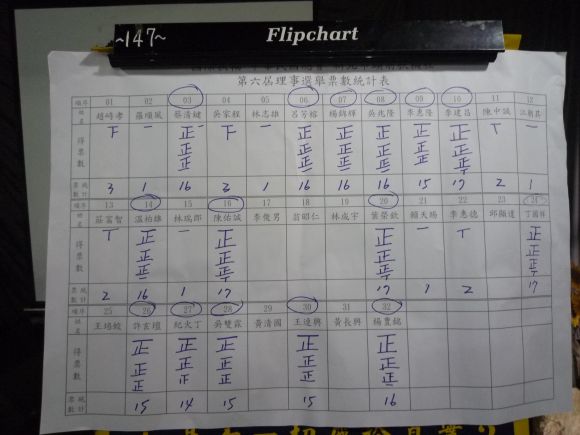 ~147~ Flipchart
第六屆理事選舉票數統計表
順序 01 02 03 04 05 06 07 08 09 10 11 12
姓名 趙崎孝 羅順風 蔡清鍵 吳家程 林志雄 呂芳榕 楊錦輝 吳兆隆 李惠隆 李建昌 陳中誠
得票數 下 一 正正正一 下 一 正正正一 正正正一 正正正一 正正正 正正正丅 丅 一
票數統計 3 1 16 3 1 16 16 16 15 17 2 1
順序 13 14 15 16 17 18 19 20 21 22 23 24
姓名 莊富智 溫柏雄 林瑞郎 陳佑誠 李俊男 翁昭仁 林成宇 葉榮欽 賴天賜 李惠德 邱顯達 丁國祥
得票數 丅 正正正一 一 正正正丅 正正正丅 一 丅 正正正丅
票數統計 2 16 1 17 17 1 2 17
順序 25 26 27 28 29 30 31 32
姓名 王培蛟 許玄瓊 紀火丁 吳雙霖 黃清國 王達興 黃長興 楊寶錦
得票數 正正正 正正正 正正正 正正正 正正正一
票數統計 15 14 15 15 16